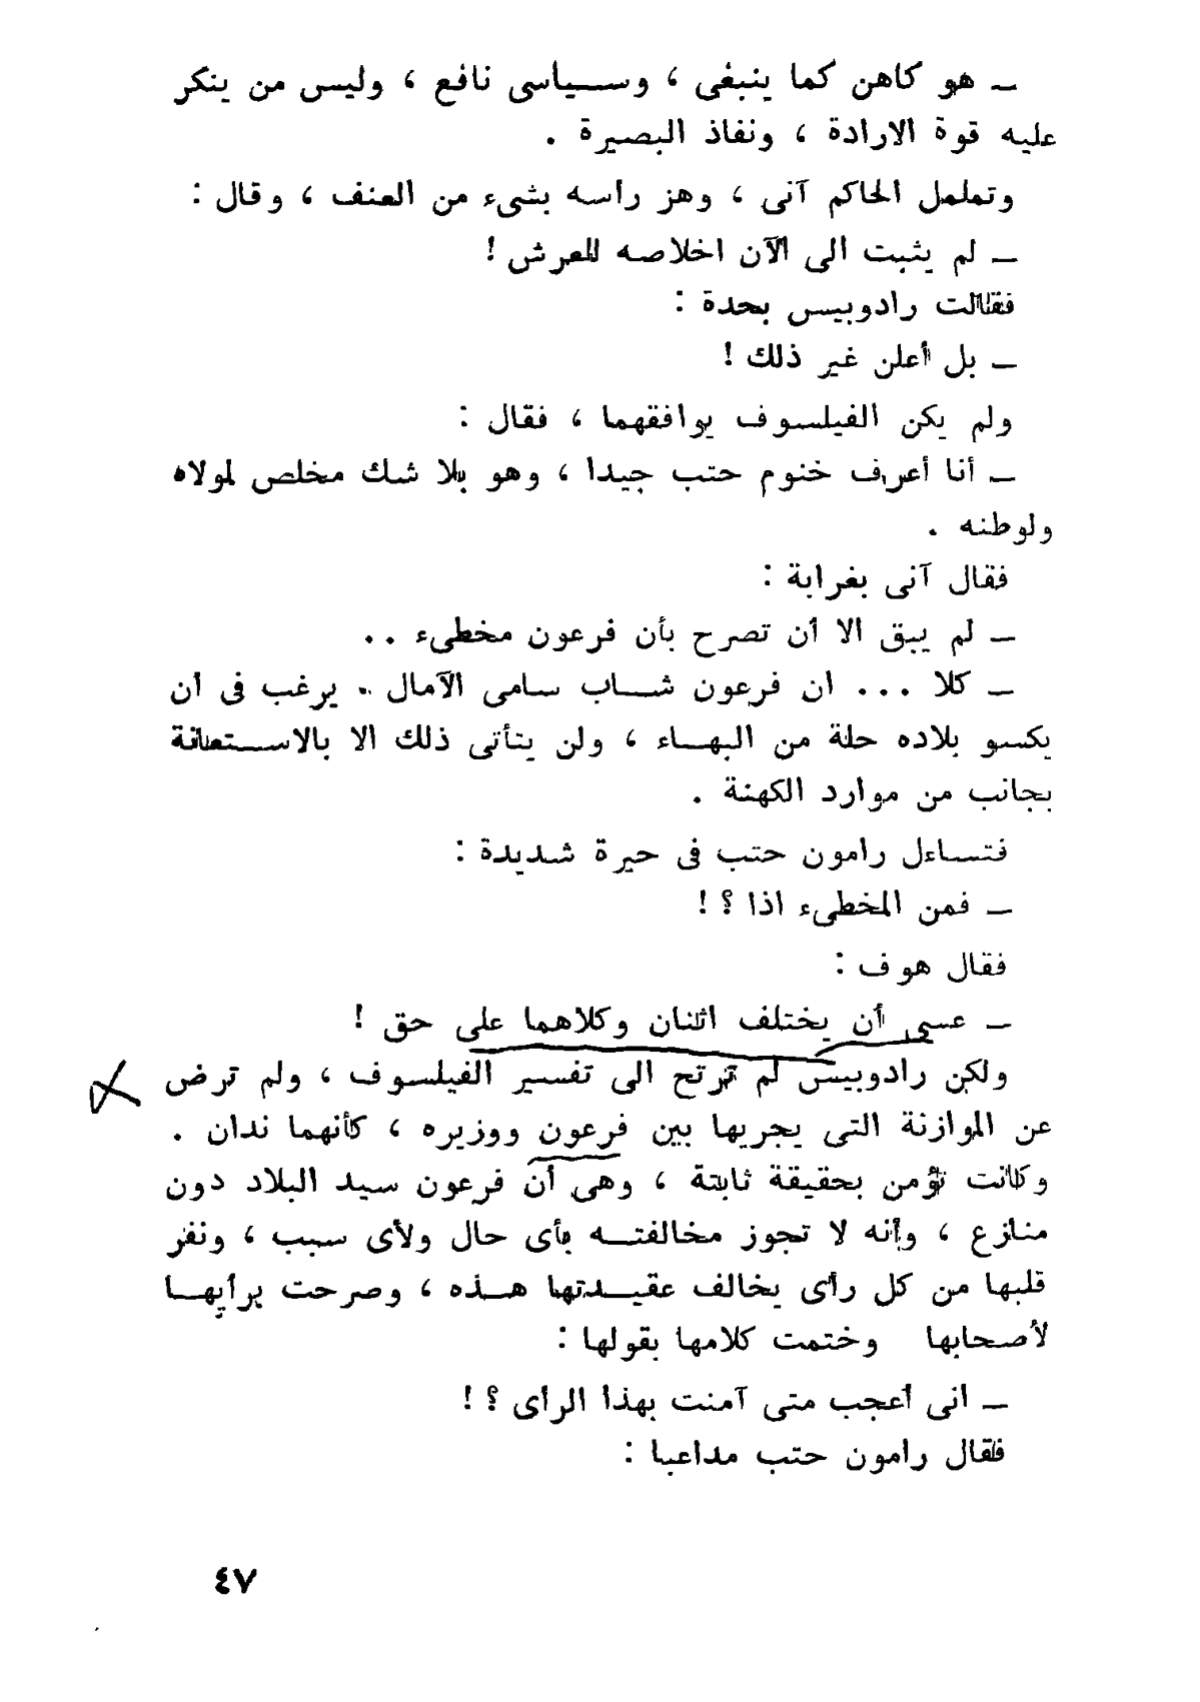 ـ هو كاهن كما ينبغى ، وسـياسى نافع ، وليس من ينكر
عليه قوة الارادة ، ونفاذ البصيرة .
وتململ الحاكم آنى ، وهز راسه بشىء من العنف ، وقال :
ـ لم يثبت الى الآن اخلاصه للعرش !
فقالت رادوبيس بحدة :
ـ بل أعلن غير ذلك !
ولم يكن الفيلسوف يوافقهما ، فقال :
ـ أنا أعرف خنوم حتب جيدا ، وهو بلا شك مخلص لمولاه
ولوطنه .
فقال آنى بغرابة :
ـ لم يبق الا أن تصرح بأن فرعون مخطىء ..
ـ كلا ... ان فرعون شـاب سامى الآمال .. يرغب فى أن
يكسو بلاده حلة من البهـاء ، ولن يتأتى ذلك الا بالاسـتعانة
بجانب من موارد الكهنة .
فتساءل رامون حتب فى حيرة شديدة :
ـ فمن المخطىء اذا ؟ !
فقال هوف :
ـ عسى أن يختلف اثنان وكلاهما على حق !
ولكن رادوبيس لم ترتح الى تفسير الفيلسوف ، ولم ترض
عن الموازنة التى يجريها بين فرعون ووزيره ، كأنهما ندان .
وكانت تؤمن بحقيقة ثابتة ، وهى أن فرعون سيد البلاد دون
منازع ، وأنه لا تجوز مخالفتـه بأى حال ولأى سبب ، ونفر
قلبها من كل رأى يخالف عقيـدتها هـذه ، وصرحت برأيهـا
لأصحابها وختمت كلامها بقولها :
ـ انى أعجب متى آمنت بهذا الرأى ؟ !
فقال رامون حتب مداعبا :
٤٧